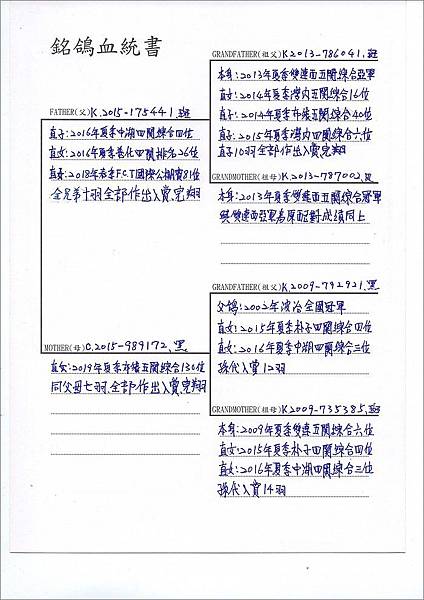 銘鴿血統書
FATHER(父) K.2015-175441.斑
直子:2016年夏季中湖四關綜合四位
直女:2016年夏季巷化四關排名26位
直女:2018年春季F.C.T國際公棚賽81位
全兄弟十羽全部作出入賞完翔
MOTHER(母) C.2015-989172.黑
直女:2019年夏季赤樸五關綜合136位
同父母七羽.全部作出入賞.完翔
GRANDFATHER(祖父) K.2013-786041.斑
本身:2013年夏季雙連西五關綜合亞軍
直女:2014年夏季灣內五關綜合16位
直子:2014年夏季赤樸五關綜合40位
直子:2015年夏季灣內四關綜合六位
直子10羽全部作出入賞完翔
GRANDMOTHER(祖母) K.2013-787002.黑
本身:2013年夏季雙連西五關綜合冠軍
與雙連西亞軍為原配對.成績同上
GRANDFATHER(祖父) K.2009-792921.黑
父鴿:2002年波治全國冠軍
直女:2015年夏季朴子四關綜合四位
直女:2016年夏季中湖四關綜合三位
孫代入賞12羽
GRANDMOTHER(祖母) K2009-735385.斑
本身:2009年夏季雙連五關綜合六位
直女:2015年夏季朴子四關綜合四位
直女:2016年夏季中湖四關綜合三位
孫代入賞14羽